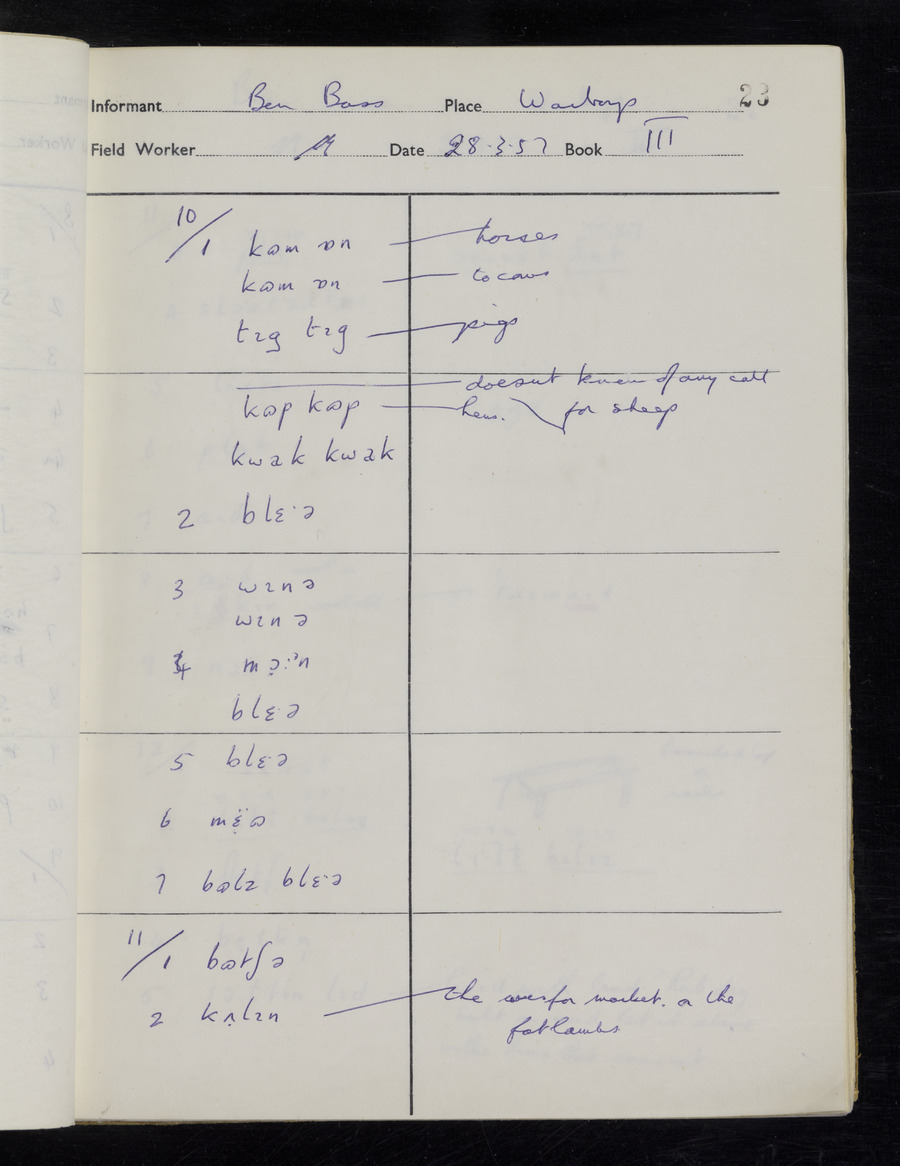 Informant Ben Bass Place Warboys 23
Field Worker Date 28·3·57 Book III
10/1 kɷm ɒn — horses
kɷm ɒn — to cows
tɪg tɪg — pigs
— doesnt know of any call for sheep
kɷp kɷp — hens.
kwak kwak
2 blɛ·ə
3 wɪnə
wɪnə
4
blɛ·ə
5 blɛ·ə
6
7 bɷlz blɛ·ə
11/1 bɷtʃə
2 kʌ̣lɪn — the ewes for market. or the
fat lambs